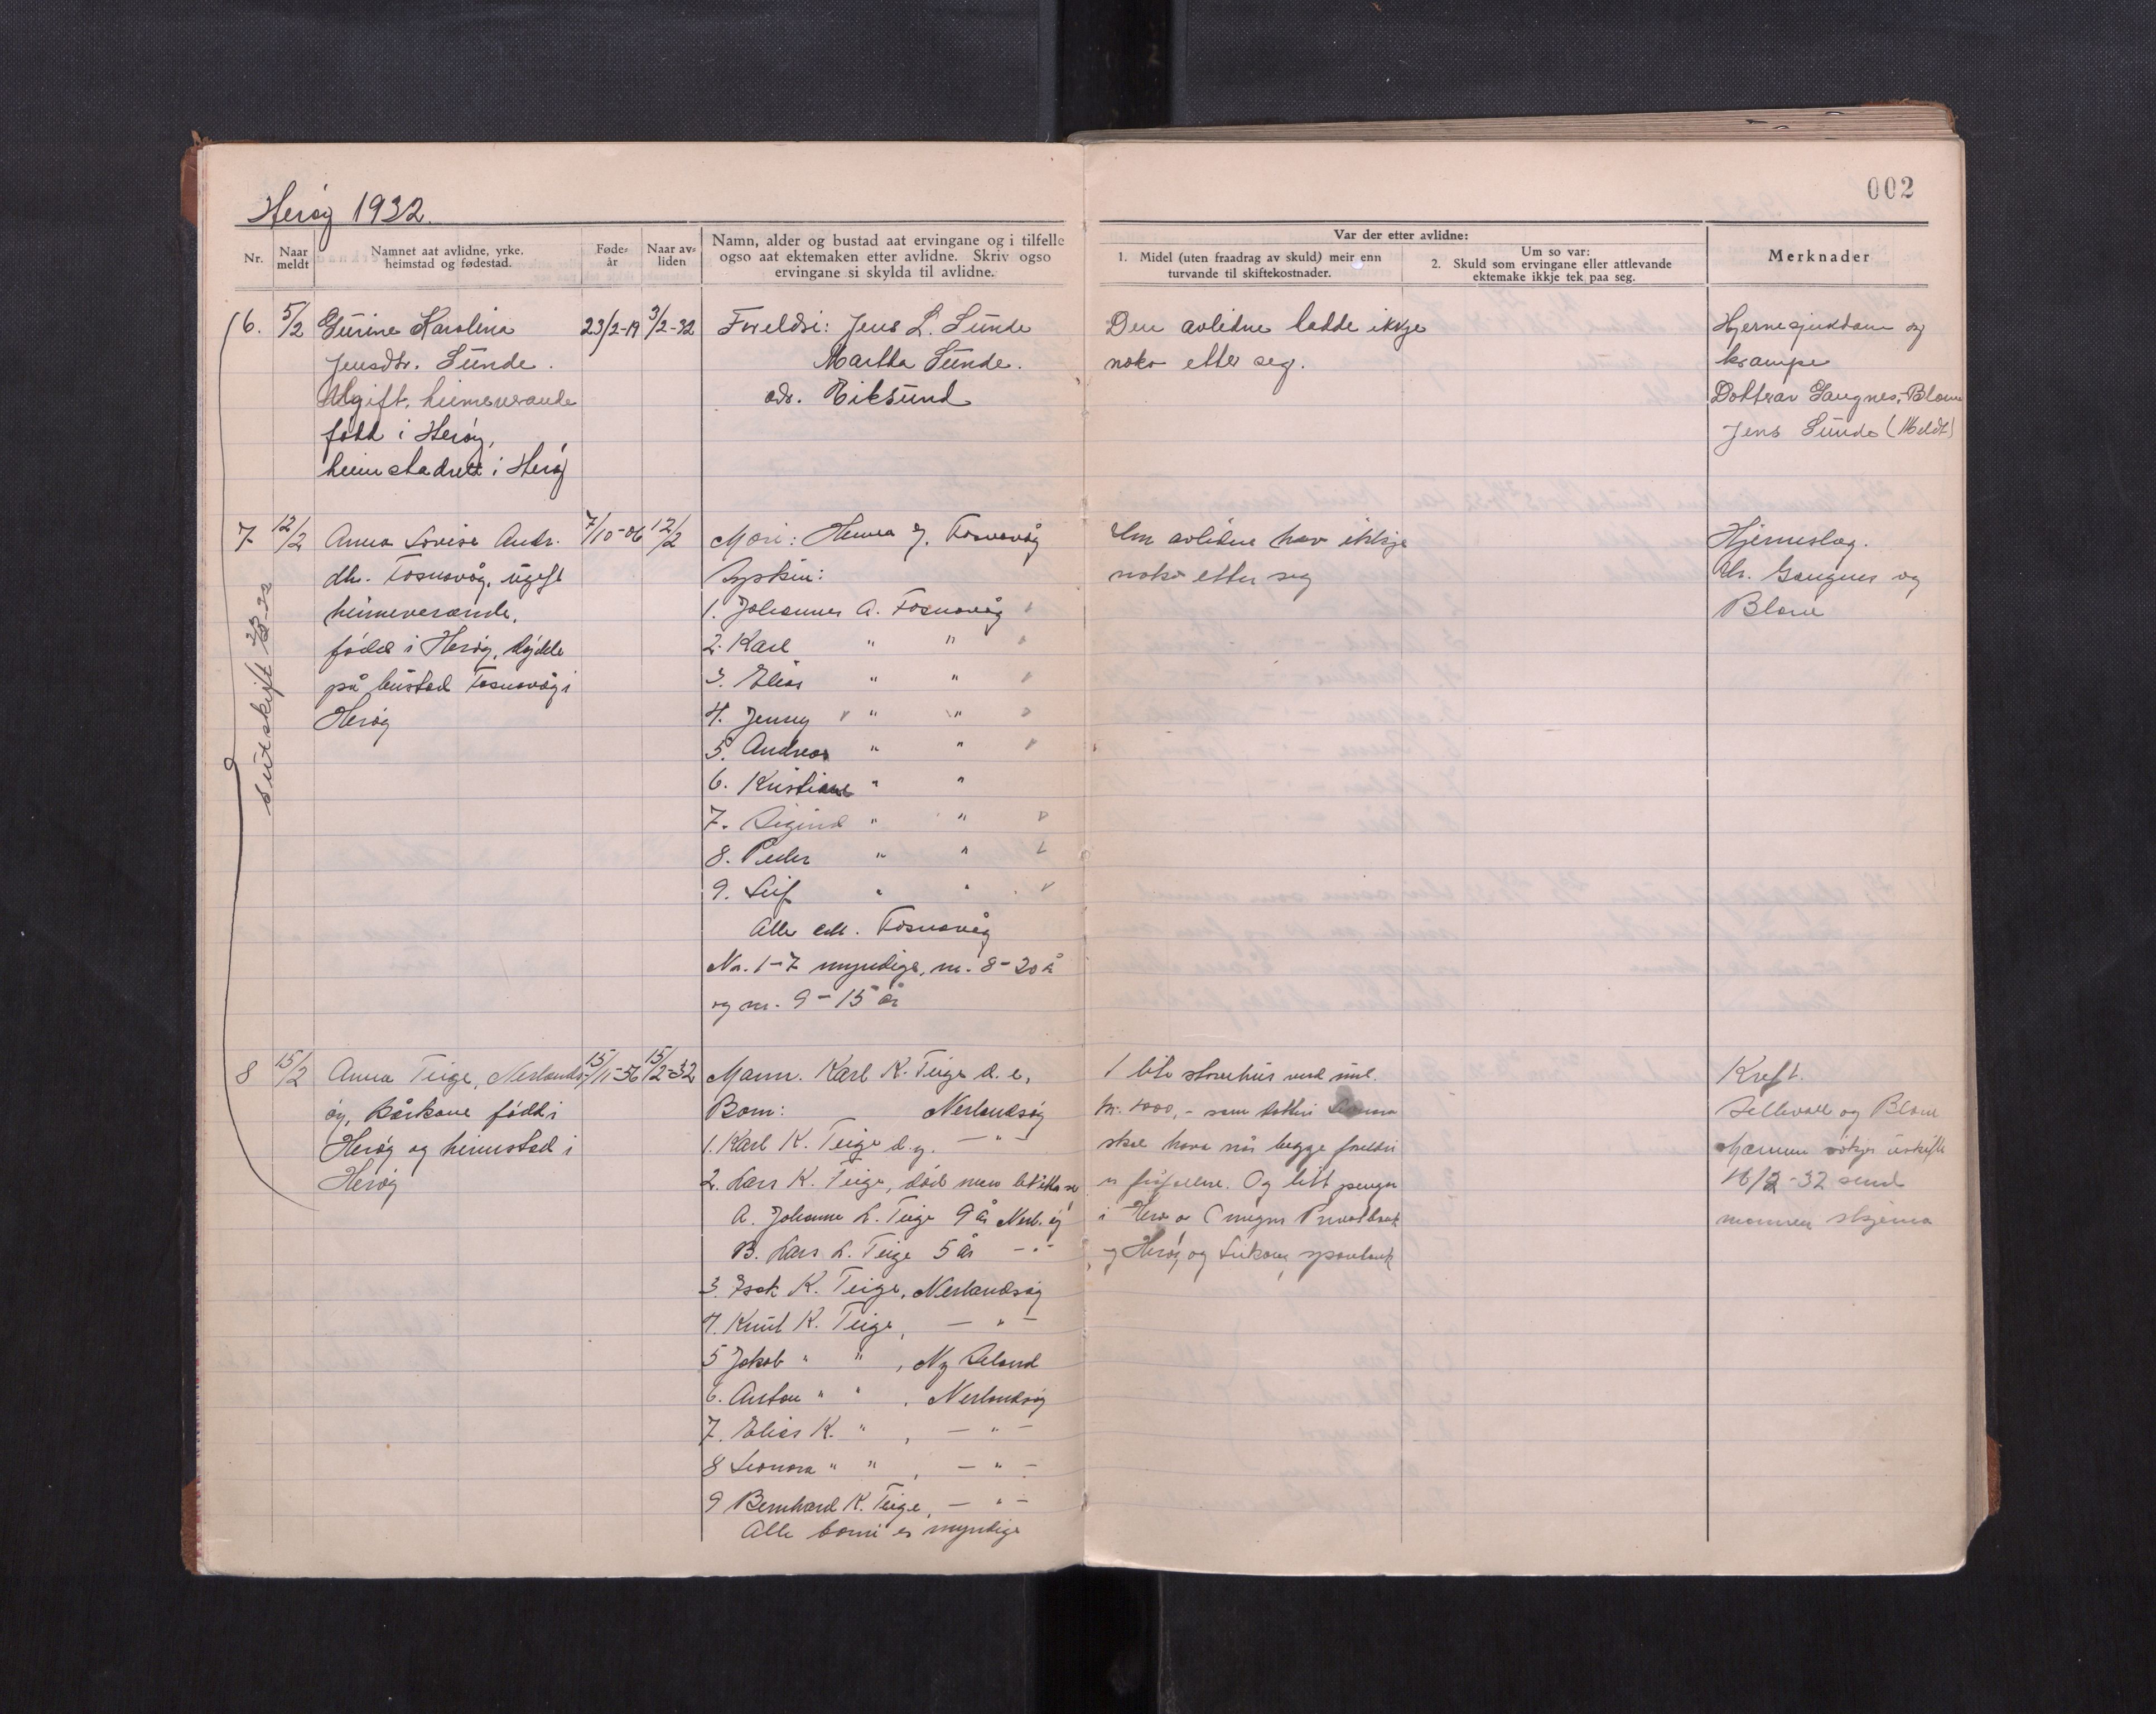 002
Herøy 1932.
Nr.
Naar meldt
Namnet aat avlidne, yrke, heimstad og fødestad.
Føde-år
Naar av-liden
Namn, alder og bustad aat ervingane og i tilfelle
ogso aat ektemaken etter avlidne. Skriv ogso
ervingane si skylda til avlidne.
Var der etter avlidne:
1. Midel (uten fraadrag av skuld) meir enn
turvande til skiftekostnader.
Um so var:
2. Skuld som ervingane eller attlevande
ektemake ikkje tek paa seg.
Merknader
6.
5/2
Gurine Karolina
Jensdtr. Sunde.
Ugift, heimeverande
født i Herøy,
heimstadrett i Herøy
23/2-19
3/2-32
Foreldri: Jens L. Sunde
Martha Sunde.
adr. Eiksund
Den avlidne ladde ikkje
noko etter seg.
Hjernesjukdam og
krampe
Doktorar Gaugnes, Blom
Jens Sunde (Meldt)
7
12/2
Anna Lovise Andr.
dtr. Fosnavåg, ugift
heimeverande,
fødd i Herøy, døydde
på bustad Fosnavåg i
Herøy
7/10-06
12/2
Mori: Henna J. Fosnavåg
Syskin:
1. Johannes A. Fosnavåg
2. Karl " "
3. Elias " "
4. Jenny " "
5. Andreas " "
6. Kristiane " "
7. Sigurd " "
8. Peder " "
9. Leif " "
Alle adr. Fosnavåg
Nr. 1-7 myndige, nr. 8 - 20 å
og nr. 9 - 15 år
avlidne hev ikkje
noko etter seg
Hjerneslag.
Dr. Gaugnes og
Blom
utskift
8
15/2
Anna Teige, Nerlands-
øy, Kårkone fødd i
Herøy og heimstad i
Herøy
15/11-56
15/2-32
Mann. Karl K. Teige d. e.
Born: Nerlandsøy
1. Karl K. Teige d. y. — " —
2. Lars K. Teige, død men let etter se
A. Johanne L. Teige 9 år Nerl. øy
B. Lars L. Teige 5 år — " —
3. Isak K. Teige, Nerlandsøy
4. Knut K. Teige, — " —
5 Jakob " " , Ny Seland
6. Anton " " , Nerlandsøy
7. Elias K. " , — " —
8 Leonora " " , — " —
9 Bernhard K. Teige, — " —
Alle borni er myndige
1 lite stovehus verd uml.
kr. 1000,- som dotteri Leonora
skal hava når begge foreldri
er fråfallne. Og litt pengar
i Herø Omegns Privatbank
og Herøy og Leikong sparebank
Kreft.
Sellevoll og Blom
Mannen
16/2-32 send
mannen skjema